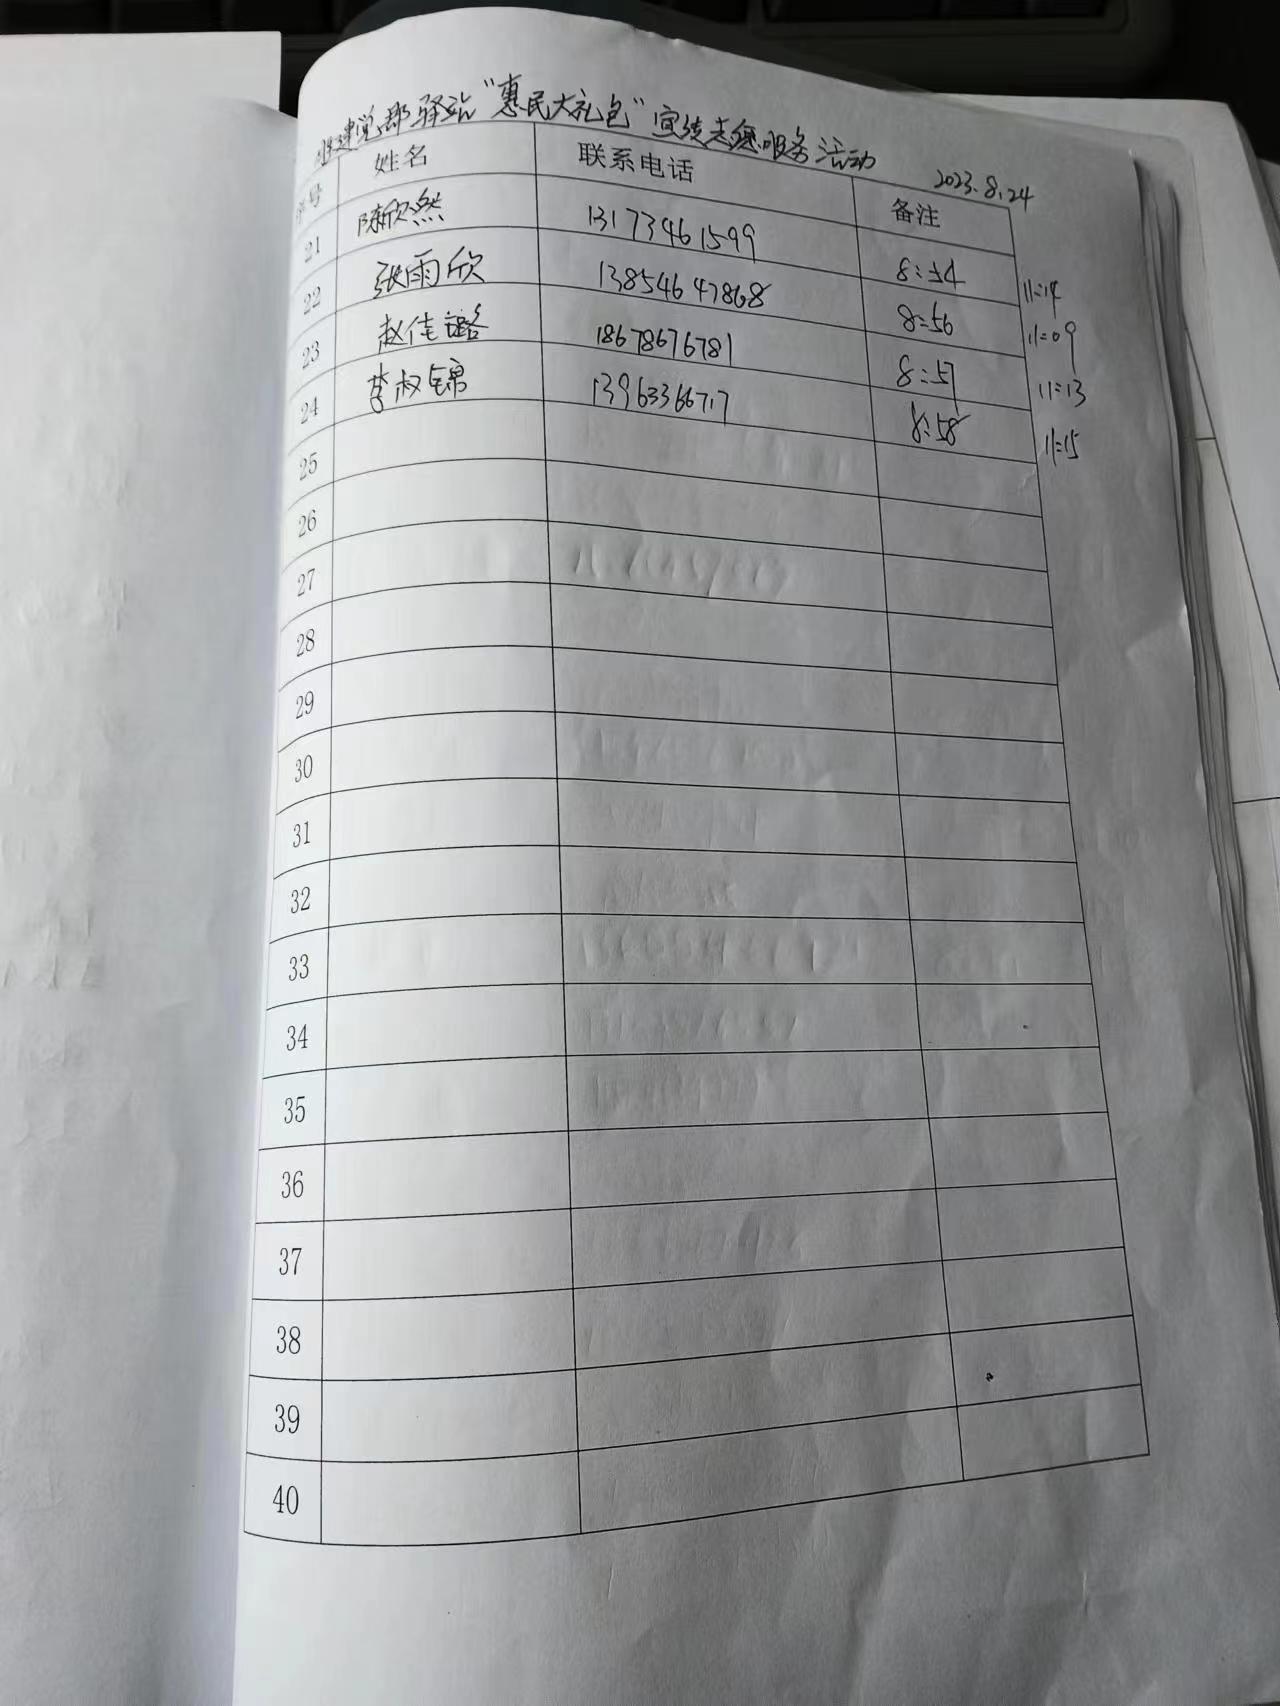 党群驿站“惠民大礼包”宣传志愿服务活动 2023.8.24
序号 姓名 联系电话 备注
21 陈欣然 13173461599 8:54 11:14
22 张雨欣 13854647868 8:56 11:09
23 赵佳璐 18678676781 8:57 11:13
24 李叔锦 13963366717 8:58 11:15
25
26
27
28
29
30
31
32
33
34
35
36
37
38
39
40